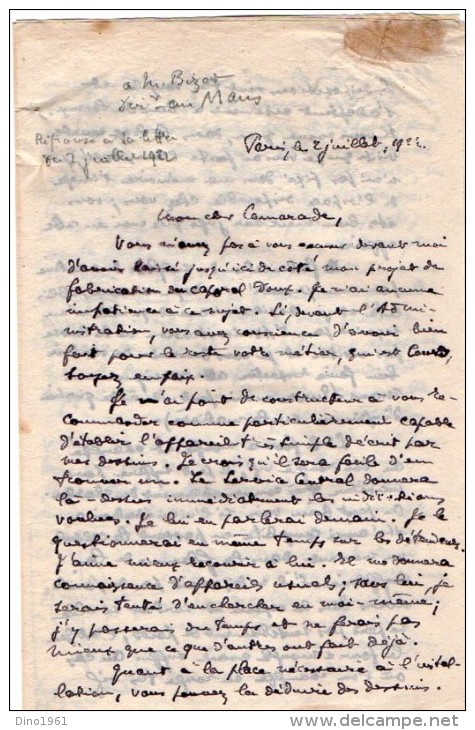 a M. Bizot
au Mans
Réponse à sa lettre
du 2 juillet 1922
Paris, le 2 juillet, 192
Mon cher Camarade,
Vous n'avez pas à vous excuser devant moi
d'avoir laissé jusqu'ici de côté mon projet de
fabrication du caporal doux. Je n'ai aucune
impatience à ce sujet. Si, devant l'Admi-
nistration, vous avez conscience d'avoir bien
fait pour le reste votre métier, qui est lourd,
soyez en paix.
Je n'ai point de constructeur à vous re-
commander comme particulièrement capable
d'établir l'appareil très simple décrit par
mes dessins. Je crois qu'il sera facile d'en
trouver un. Le Service Central donnera
là-dessus immédiatement les indications
voulues. Je lui en parlerai demain. Je le
questionnerai en même temps sur les détendeurs.
J'aime mieux recourir à lui. Il me donnera
connaissance d'appareils usuels; sans lui, je
serais tenté d'en chercher un moi-même;
j'y passerai du temps et ne ferais pas
mieux que ce que d'autres ont fait déjà.
Quant à la place nécessaire à l'instal-
lation, vous pouvez la déduire des dessins.
Dino1961
www.delcampe.net